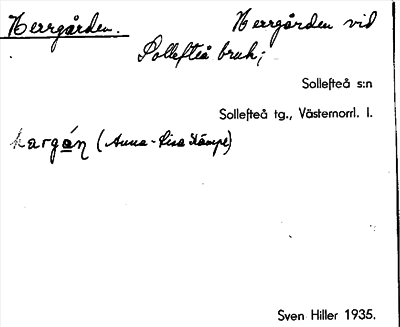 Herrgården. Herrgården vid
Sollefteå bruk;
Sollefteå s:n
Sollefteå tg., Västernorrl. l.
hargá̲n (Anna-Lisa Kämpe)
Sven Hiller 1935.